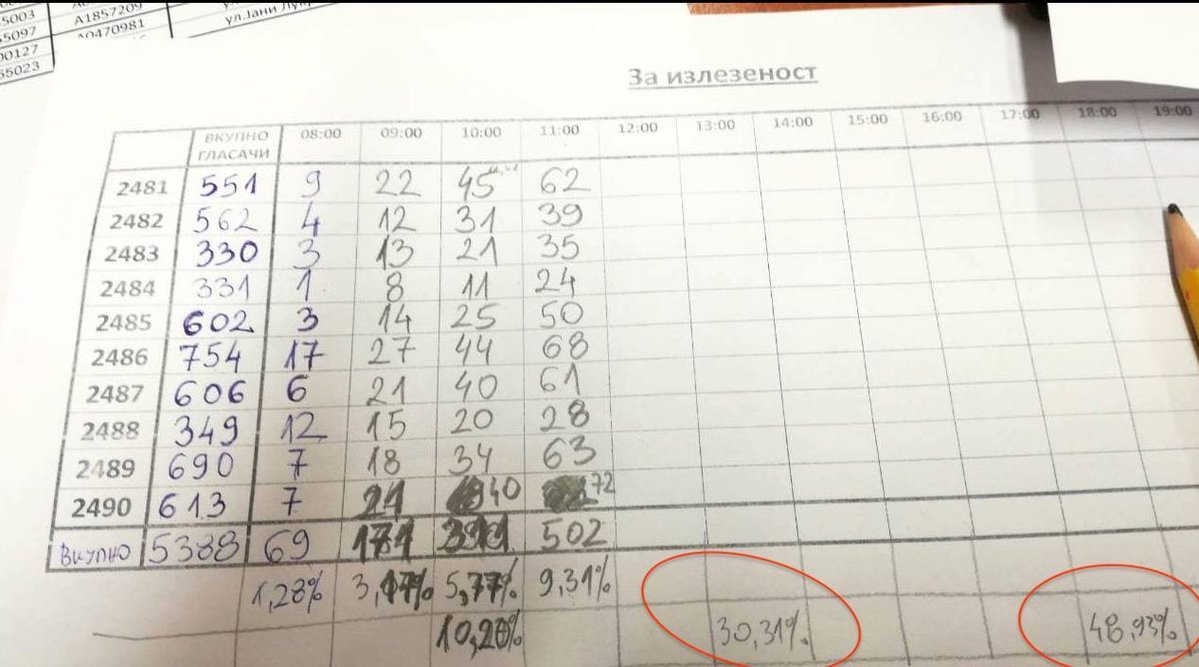 5003 A1857209
5097 A0470981 ул.Јани Лук
00127
55023
За излезеност
ВКУПНО ГЛАСАЧИ 08:00 09:00 10:00 11:00 12:00 13:00 14:00 15:00 16:00 17:00 18:00 19:00
2481 551 9 22 45 62
2482 562 4 12 31 39
2483 330 3 13 21 35
2484 331 1 8 11 24
2485 602 3 14 25 50
2486 754 17 27 44 68
2487 606 6 21 40 61
2488 349 12 15 20 28
2489 690 7 18 34 63
2490 613 7 21 40 72
Вкупно 5388 69 171 311 502
1,28% 3,17% 5,77% 9,31%
10,20% 30,31% 48,93%